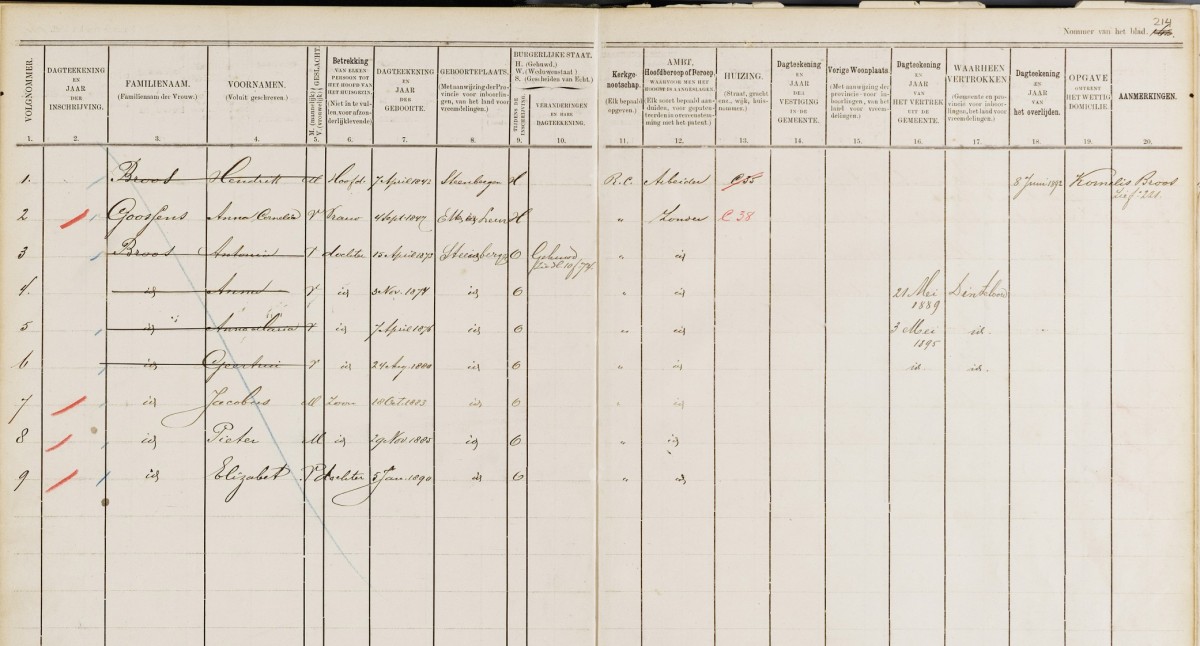 214
Nommer van het blad.
VOLGNOMMER.
DAGTEEKENING EN JAAR DER INSCHRIJVING.
FAMILIENAAM. (Familienaam der Vrouw.)
VOORNAMEN. (Voluit geschreven.)
M. (mannelijk) V. (vrouwelijk) GESLACHT.
Betrekking VAN ELKEN PERSOON TOT HET HOOFD VAN HET HUISGEZIN. (Niet in te vullen voor afzonderlijk levende).
DAGTEEKENING EN JAAR DER GEBOORTE.
GEBOORTEPLAATS. Met aanwijzing der Provincie voor inboorlingen, van het land voor vreemdelingen.)
BURGERLIJKE STAAT. H. (Gehuwd.) W. (Weduwenstaat.) S. (Gescheiden van Echt.)
TIJDENS DE INSCHRIJVING
VERANDERINGEN EN HARE DAGTEEKENING.
Kerkgenootschap. (Elk bepaald opgeven.)
AMBT, Hoofdberoep of Beroep, WAARVOOR MEN HET HOOGST IS AANGESLAGEN
HUIZING. (Straat, gracht enz., wijk, huisnummer.)
Dagteekening EN JAAR DES VESTIGING IN DE GEMEENTE.
Vorige Woonplaats. (Met aanwijzing der provincie voor inboorlingen, van het land voor vreemdelingen.)
Dagteekening EN JAAR VAN HET VERTREK UIT DE GEMEENTE.
WAARHEEN VERTROKKEN. (Gemeente en provincie voor inboorlingen, het land voor vreemdelingen.)
Dagteekening EN JAAR VAN het overlijden.
OPGAVE OMTRENT HET WETTIG DOMICILIE.
AANMERKINGEN.
1. 2. 3. 4. 5. 6. 7. 8. 9. 10. 11. 12. 13. 14. 15. 16. 17. 18. 19. 20.
1. Broos Hendrik M Hoofd 7 April 1842 Steenbergen H R.C. Arbeider C 55 8 Juni 1892 Kornelis Broos
2 Goossens Anna Cornelia V Vrouw 4 Sept 1847 H " Zonder C 38
3 Broos Antonia V dochter 15 April 1873 O Gehuwd " id
4. id Anna V id 3 Nov. 1874 id O " id 21 Mei 1889 Dinteloord
5 id Anna Maria V id 7 April 1876 id O " id 3 Mei 1895 id.
6 id Geertrui V id 24 Aug. 1880 id O " id id id.
7 id Jacobus M Zoon 18 Oct. 1883 id O " id
8 id Pieter M id 29 Nov. 1885 id O " id
9 id Elizabet V dochter 5 Jan. 1890 id O " id